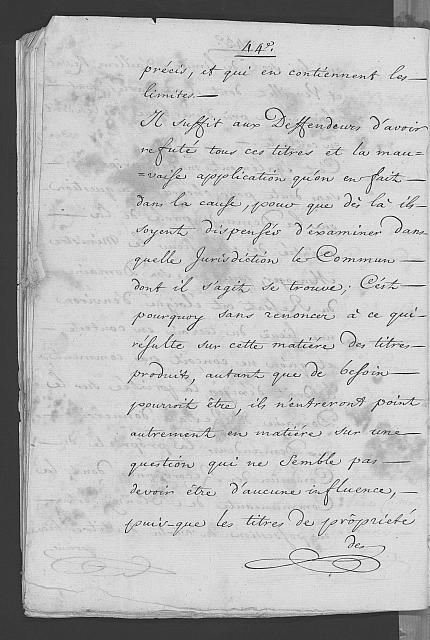 44º.
précis, et qui en contiennent les —
limites. —
Il suffit aux Deffendeurs d'avoir
refuté tous ces titres et la mau-
=vaise application qu'on en fait —
dans la cause, pour que dès là ils —
soyent dispensés d'éxaminer dans
quelle Jurisdiction le Commun —
dont il s'agit se trouve; C'ést —
pourquoy sans renoncer à ce qui —
résulte sur cette matiére des titres —
produits, autant que de besoin —
pourroit être, ils n'entreront point
autrement en matiére sur une —
question qui ne Semble pas —
devoir être d'aucune influence, —
puis-que les titres de propriété
des